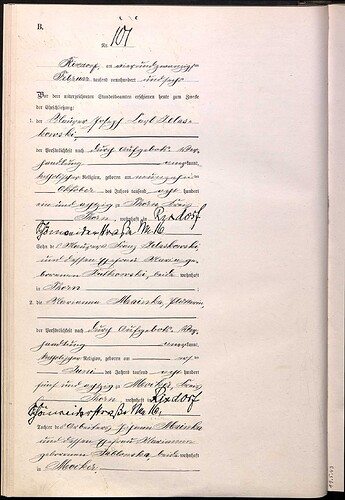 B.
Nr. 101
Rixdorf, am vierundzwanzigsten
Februar tausend neunhundert und sechs
Vor dem unterzeichneten Standesbeamten erschienen heute zum Zwecke
der Eheschließung:
1. der Maurer Joseph Karl
kowski,
der Persönlichkeit nach durch Aufgebots-Ver-
handlung anerkannt,
katholischer Religion, geboren am neunzehnten
Oktober des Jahres tausend acht hundert
ein und achtzig zu Thorn, Kreis
Thorn, wohnhaft in Rixdorf
Straße No 16
Sohn des Maurers Franz
und dessen Ehefrau
geborenen Sutkowski, beide wohnhaft
in Thorn
2. die Marianna Mainka,
der Persönlichkeit nach durch Aufgebots-Ver-
handlung anerkannt,
katholischer Religion, geboren am
Juni des Jahres tausend acht hundert
fünf und achtzig zu Mocker, Kreis
Thorn, wohnhaft in Rixdorf
Straße No 16.
Tochter des Arbeiters Johann Mainka
und dessen Ehefrau Marianna
geborenen Jablonska, beide wohnhaft
in Mocker.